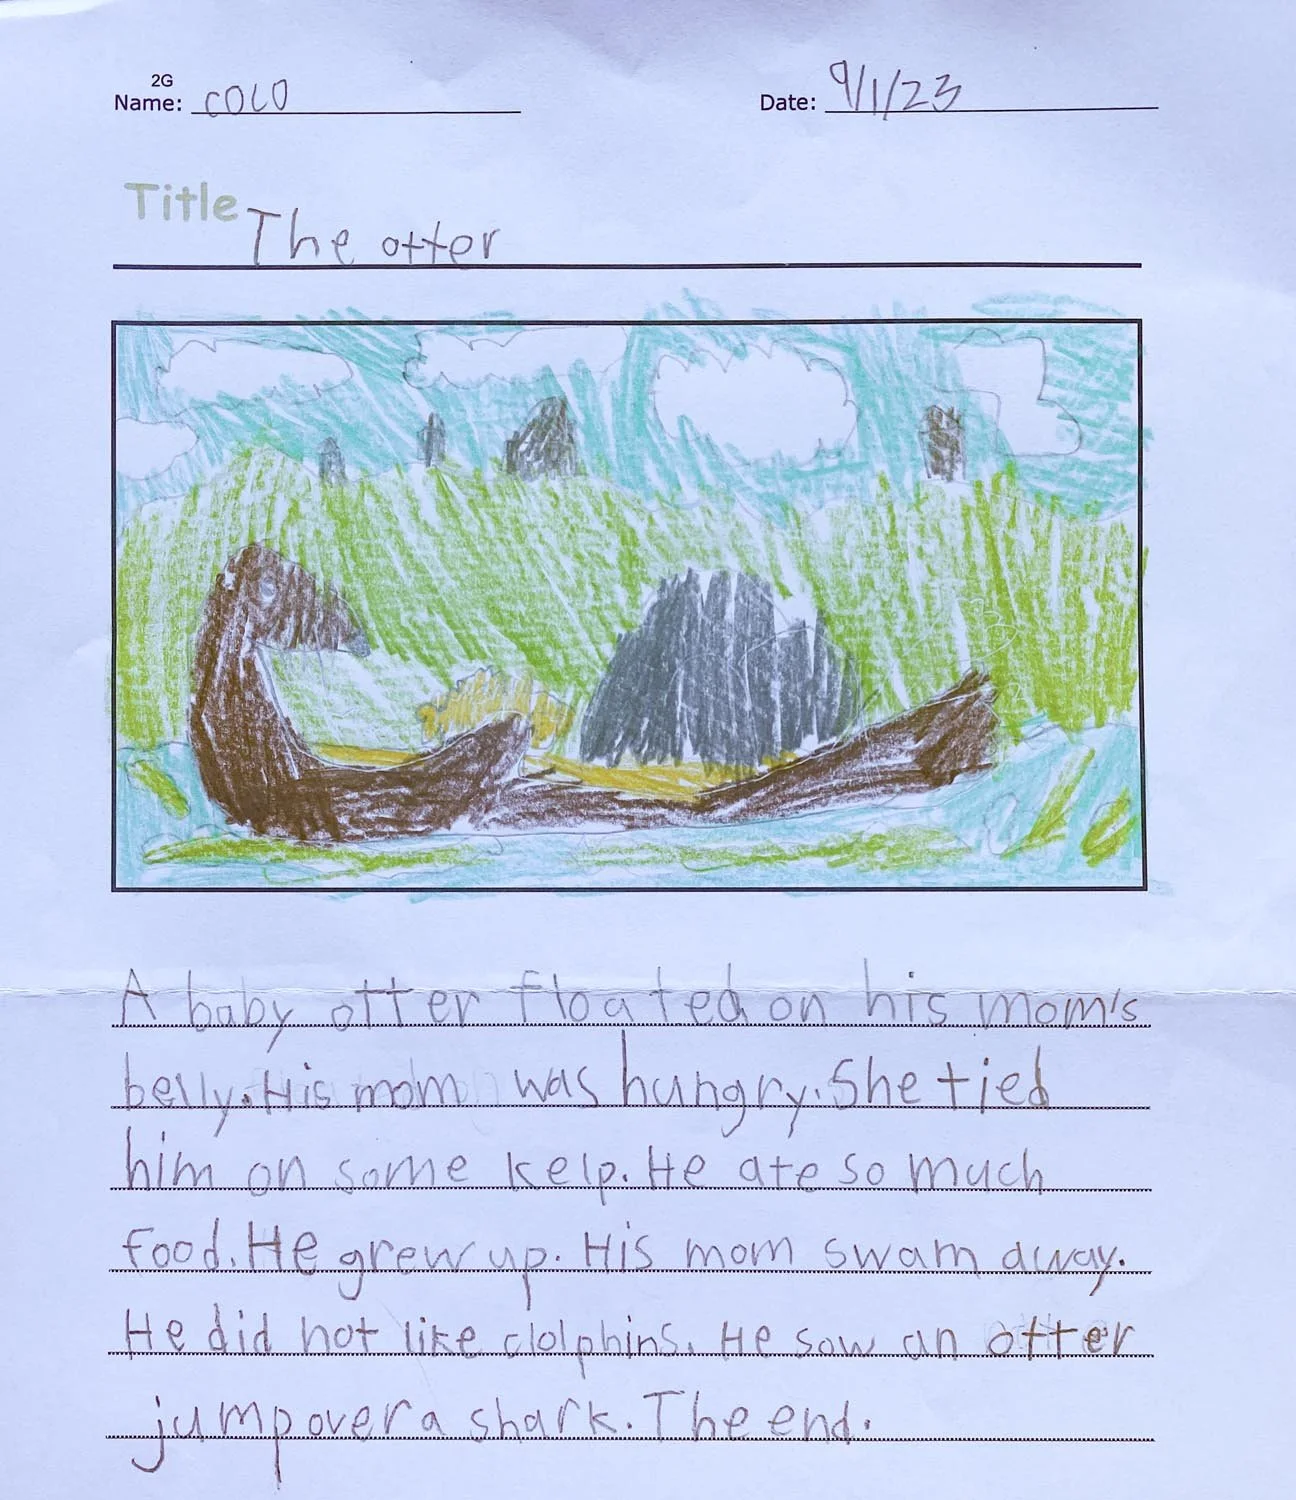 2G
Name: COLO
Date: 9/1/23
Title The otter
A baby otter floated on his mom's
belly. His mom was hungry. She tied
him on some kelp. He ate so much
food. He grew up. His mom swam away.
He did not like dolphins. He saw an otter
jump over a shark. The end.